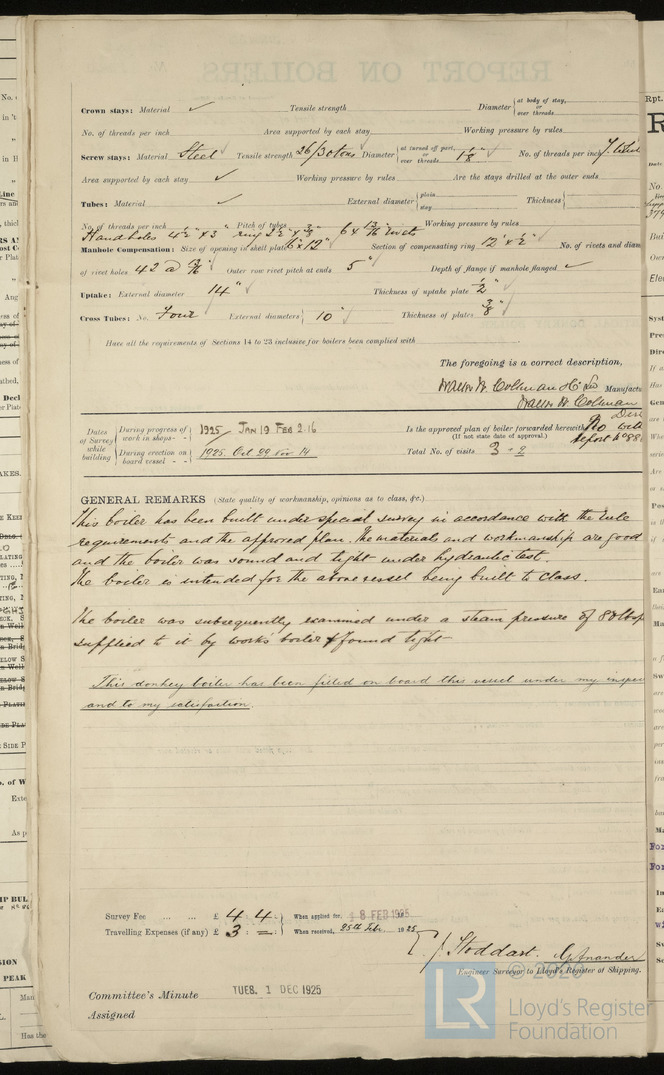 REPORT ON BOILERS
Crown stays: Material ✓ Tensile strength Diameter { at body of stay, or over threads
No. of threads per inch Area supported by each stay Working pressure by rules
Screw stays: Material Steel Tensile strength 26/30 tons Diameter { at turned off part, or over threads 1 1/8" No. of threads per inch
Area supported by each stay ✓ Working pressure by rules Are the stays drilled at the outer ends
Tubes: Material ✓ External diameter { plain stay Thickness {
No. of threads per inch Pitch of tubes Working pressure by rules
Handholes 4½" x 3" ring 2½" x 3/8" 6 x 13/16 rivets
Manhole Compensation: Size of opening in shell plate 16 x 12" Section of compensating ring 12" x ½" No. of rivets and diam
of rivet holes 42 @ 13/16" Outer row rivet pitch at ends 5" Depth of flange if manhole flanged ✓
Uptake: External diameter 14" Thickness of uptake plate ½"
Cross Tubes: No. Four External diameters { 10" Thickness of plates 3/8"
Have all the requirements of Sections 14 to 23 inclusive for boilers been complied with
The foregoing is a correct description,
Walter W. Coltman & Co Ltd Manufactu
Walter W. Coltman
Dates of Survey while building { During progress of work in shops - - 1925 JAN 19 FEB 2.16
During erection on board vessel - - 1925. Oct 29 Nov 14
Is the approved plan of boiler forwarded herewith No
(If not state date of approval.) report No 881
Total No. of visits 3 + 2
GENERAL REMARKS (State quality of workmanship, opinions as to class, &c.)
This boiler has been built under special survey in accordance with the rule
requirements and the approved plan. The materials and workmanship are good
and the boiler was sound and tight under hydraulic test
The boiler is intended for the above vessel being built to class.
The boiler was subsequently examined under a steam pressure of 80 lbs
supplied to it by works boiler & found tight
This donkey boiler has been fitted on board this vessel under my inspec
and to my satisfaction.
Survey Fee ... ... £ 4 : 4 : When applied for, 18 FEB 1925
Travelling Expenses (if any) £ 3 : = : When received, 25th Feb. 1925
J. Stoddart.
Engineer Surveyor to Lloyd's Register of Shipping.
Committee's Minute TUES. 1 DEC 1925
Assigned
© 2020
LR Lloyd's Register
Foundation